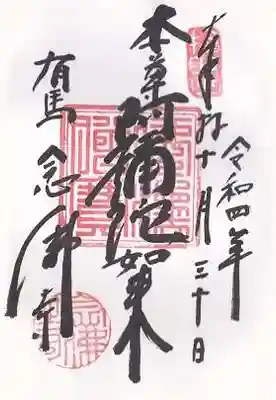 奉拝 令和四年
十月三十日
本尊阿彌陀如来
有馬 念佛寺